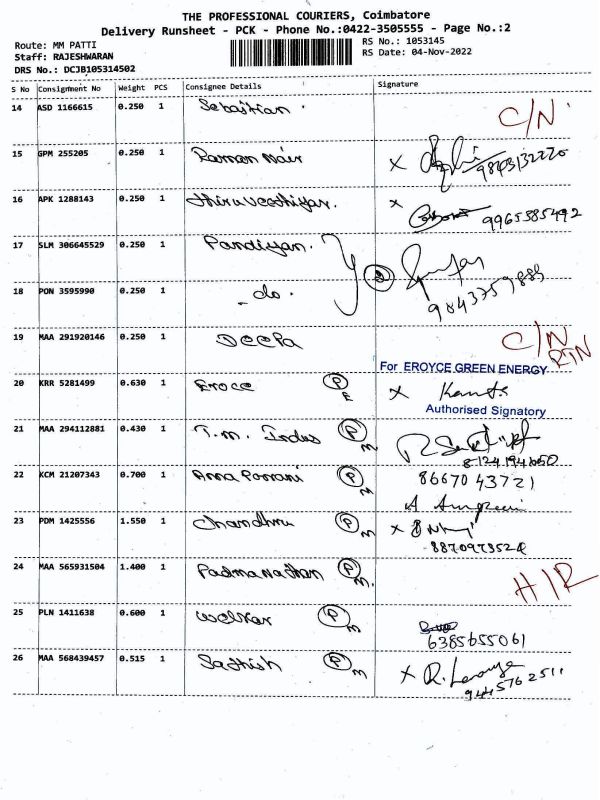 THE PROFESSIONAL COURIERS, Coimbatore
Delivery Runsheet - PCK - Phone No.:0422-3505555 - Page No.:2
Route: MM PATTI RS No.: 1053145
Staff: RAJESHWARAN RS Date: 04-Nov-2022
DRS No.: DCJB105314502
S No Consignment No Weight PCS Consignee Details Signature
14 ASD 1166615 0.250 1 Sebastian . C/N
15 GPM 255205 0.250 1 Raman Nair x
16 APK 1288143 0.250 1 x 9965385492
17 SLM 306645529 0.250 1 Pandiyan.
18 PON 3595990 0.250 1 - do. 9843759889
19 MAA 291920146 0.250 1 Deepa C/N
RTN
For EROYCE GREEN ENERGY
20 KRR 5281499 0.630 1 Eroce P E x
Authorised Signatory
21 MAA 294112881 0.430 1 T.m. Indus P m
8124194650
22 KCM 21207343 0.700 1 P 8667043721
23 PDM 1425556 1.550 1 Chandru P m x
24 MAA 565931504 1.400 1 Padmanathan P m. H/R
25 PLN 1411638 0.600 1 P m
6385655061
26 MAA 568439457 0.515 1 Sathish P m x
9445762511